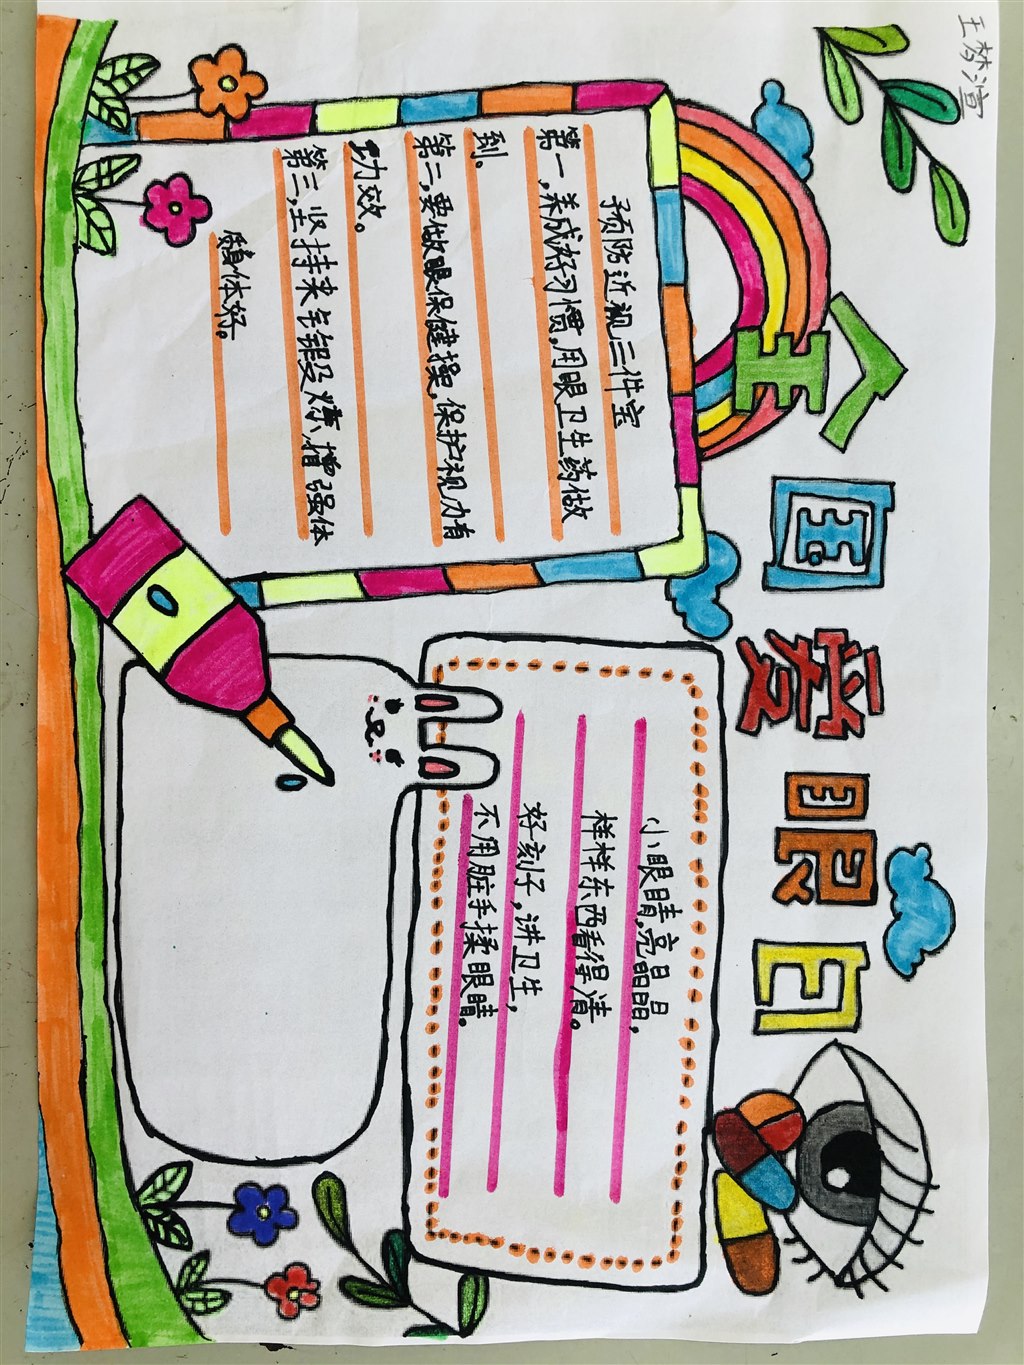 王梦渲
全国爱眼日
预防近视三件宝
第一,养成好习惯,用眼卫生药做
到。
第二,要做眼保健操,保护视力有
功效。
第三,坚持来年锻及炼,增强体
質身体好。
小眼睛,亮晶晶,
样样东西看得清。
好刻子,讲卫生,
不用脏手揉眼睛。